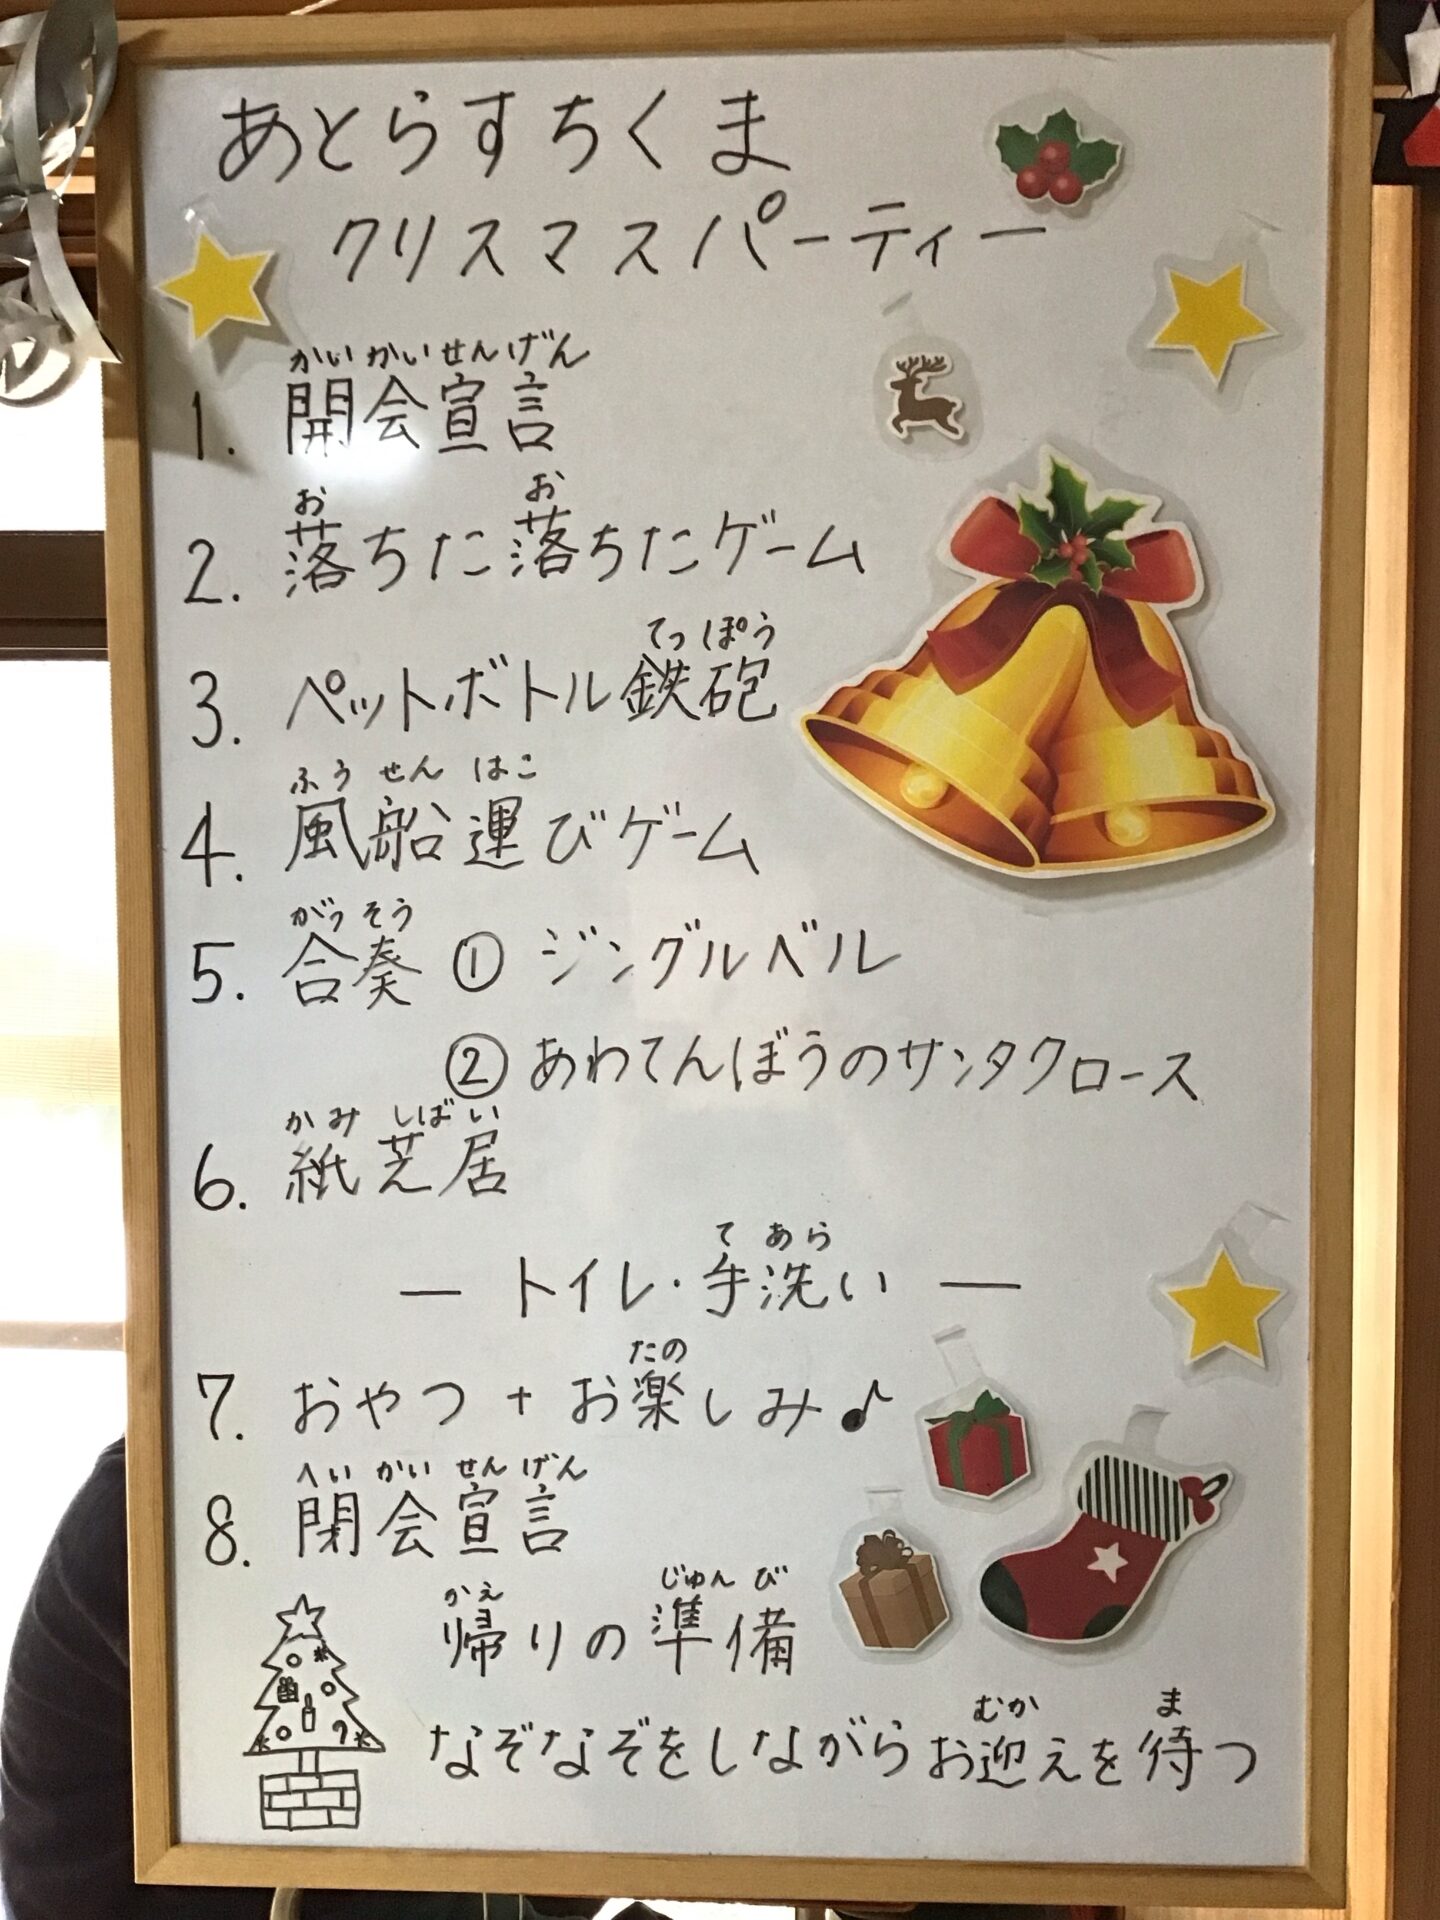 あとらすちくま
クリスマスパーティー
かいかいせんげん
1. 開会宣言
お お
2. 落ちた落ちたゲーム
てっぽう
3. ペットボトル鉄砲
ふうせん はこ
4. 風船運びゲーム
がっそう
5. 合奏 ① ジングルベル
② あわてんぼうのサンタクロース
かみ しばい
6. 紙芝居
て あら
― トイレ・手洗い ―
たの
7. おやつ + お楽しみ♪
へい かい せん げん
8. 閉会宣言
かえ じゅん び
帰りの準備
むか ま
なぞなぞをしながらお迎えを待つ